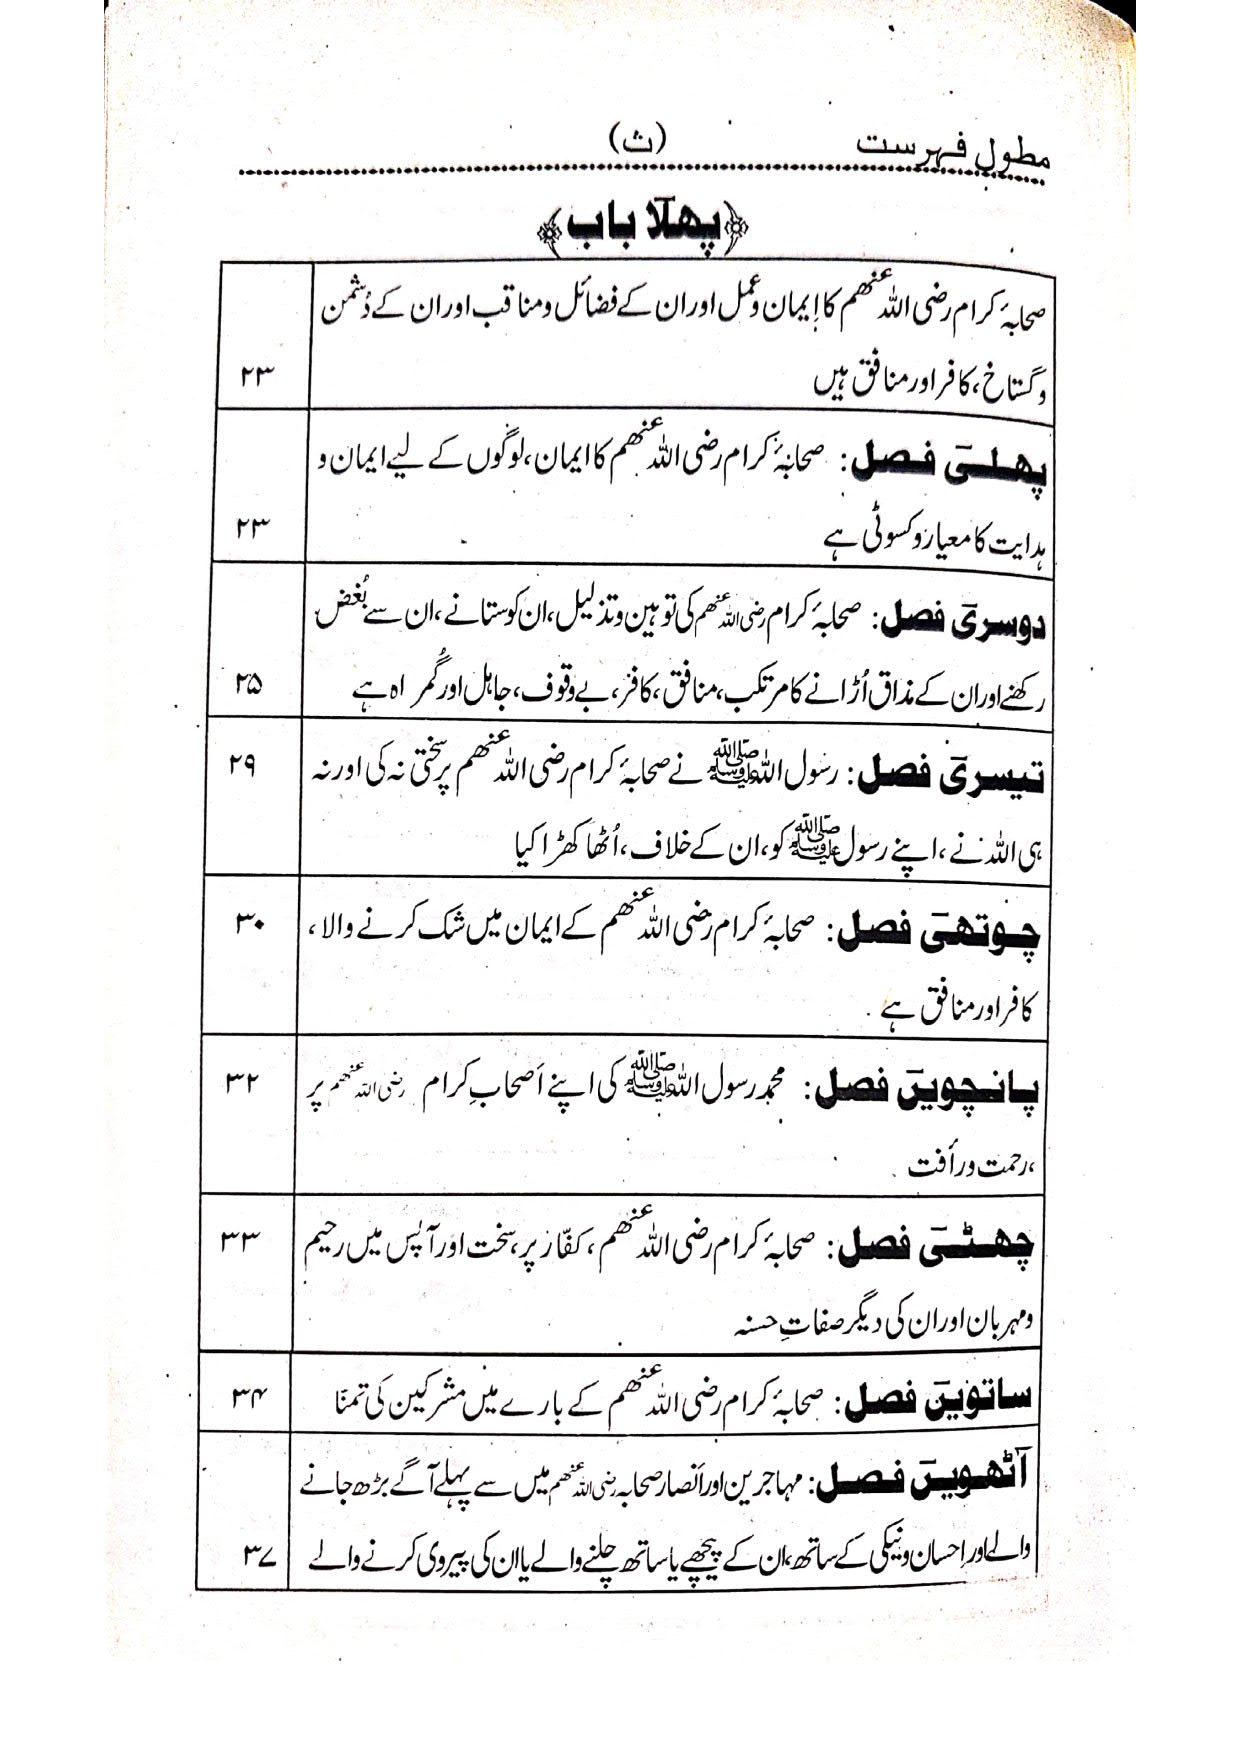 مطول فہرست (ث)
﴿پہلا باب﴾
صحابۂ کرام رضی اللہ عنھم کا اِیمان وعمل اور ان کے فضائل و مناقب اور ان کے دُشمن
و گستاخ، کافر اور منافق ہیں ۲۳
پہلی فصل: صحابۂ کرام رضی اللہ عنھم کا ایمان، لوگوں کے لیے ایمان و
ہدایت کا معیار و کسوٹی ہے ۲۳
دوسری فصل: صحابۂ کرام رضی اللہ عنھم کی توہین و تذلیل، ان کو ستانے، ان سے بُغض
رکھنے اور ان کے مذاق اُڑانے کا مرتکب، منافق، کافر، بے وقوف، جاہل اور گُمراہ ہے ۲۵
تیسری فصل: رسول اللہ ﷺ نے صحابۂ کرام رضی اللہ عنھم پر سختی نہ کی اور نہ ۲۹
ہی اللہ نے، اپنے رسول ﷺ کو، ان کے خلاف، اُٹھا کھڑا کیا
چوتھی فصل: صحابۂ کرام رضی اللہ عنھم کے ایمان میں شک کرنے والا، ۳۰
کافر اور منافق ہے
پانچویں فصل: محمد رسول اللہ ﷺ کی اپنے اَصحابِ کرام رضی اللہ عنھم پر ۳۲
، رحمت و رأفت
چھٹی فصل: صحابۂ کرام رضی اللہ عنھم، کفّار پر، سخت اور آپس میں رحیم ۳۳
و مہربان اور ان کی دیگر صفاتِ حسنہ
ساتویں فصل: صحابۂ کرام رضی اللہ عنھم کے بارے میں مشرکین کی تمنّا ۳۴
آٹھویں فصل: مہاجرین اور اَنصار صحابہ رضی اللہ عنھم میں سے پہلے آگے بڑھ جانے
والے اور اِحسان و نیکی کے ساتھ، ان کے پیچھے یا ساتھ چلنے والے یا ان کی پیروی کرنے والے ۳۷